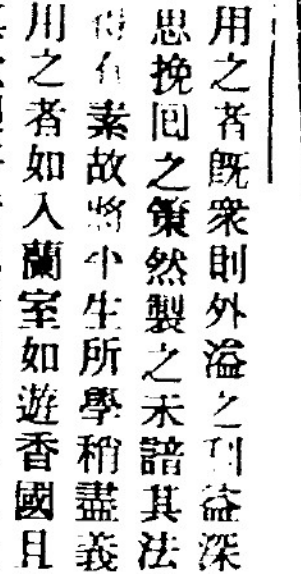 用之者既衆則外溢之利益深
思挽回之策然製之未諳其法
得有素故將小生所學稍盡義
用之者如入蘭室如遊香國且